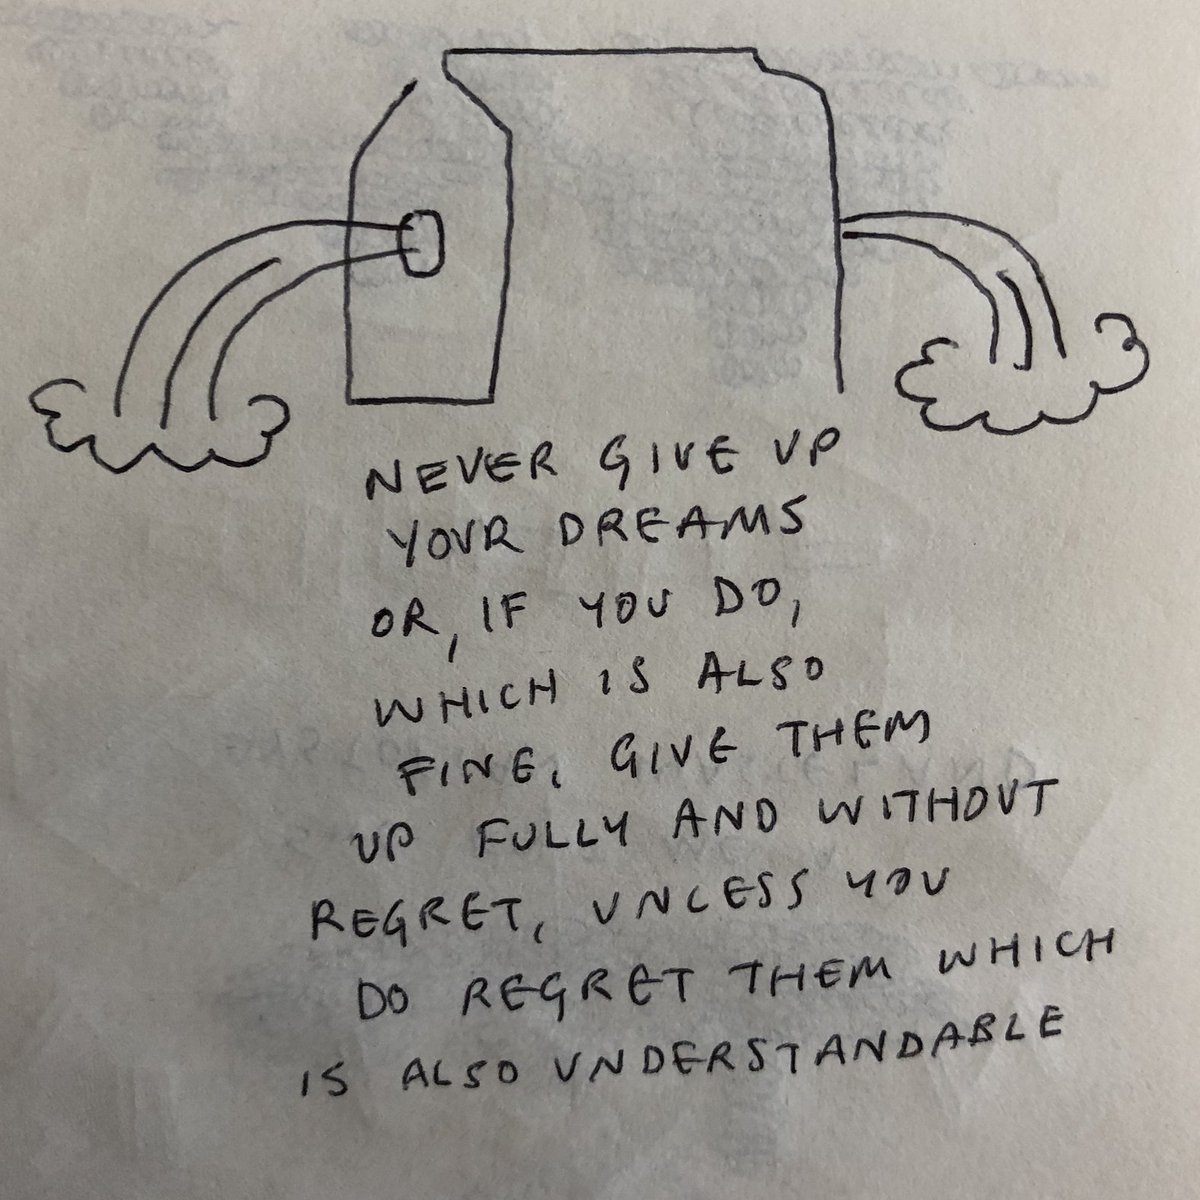 NEVER GIVE UP
YOUR DREAMS
OR, IF YOU DO,
WHICH IS ALSO
FINE, GIVE THEM
UP FULLY AND WITHOUT
REGRET, UNLESS YOU
DO REGRET THEM WHICH
IS ALSO UNDERSTANDABLE